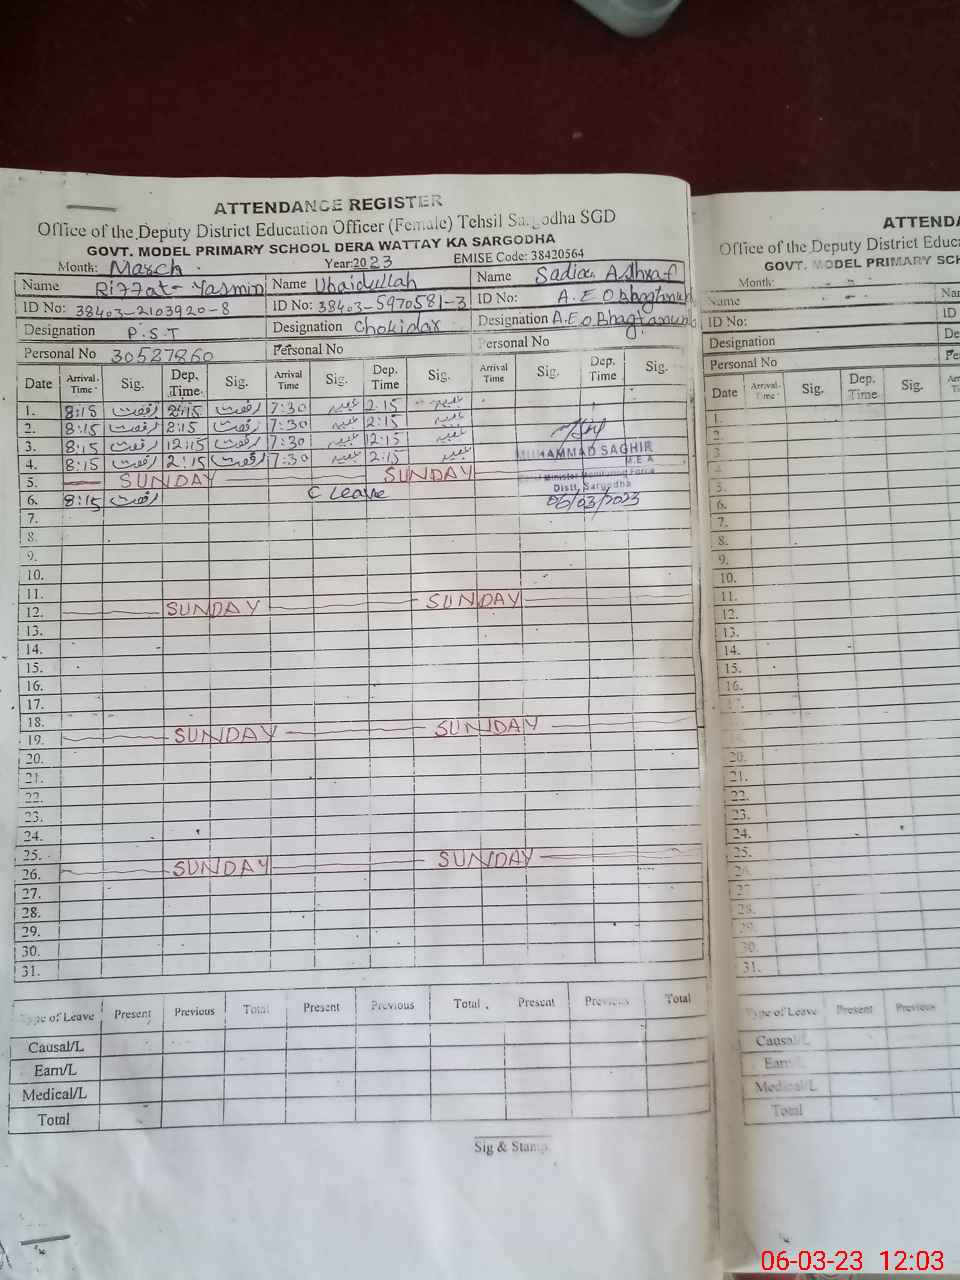 ATTENDANCE REGISTER
Office of the Deputy District Education Officer (Female) Tehsil Sargodha SGD
GOVT. MODEL PRIMARY SCHOOL DERA WATTAY KA SARGODHA
Month: March Year:2023 EMISE Code: 38420564
Name Riffat Yasmin Name Ubaidullah Name Sadia Ashraf
ID No: 38403-2103920-8 ID No: 38403-5970581-3 ID No: A.E.O Bhagtanwala
Designation P.S.T Designation Chokidar Designation A.E.O Bhagtanwala
Personal No 30527860 Personal No Personal No
Date Arrival Time Sig. Dep. Time Sig. Arrival Time Sig. Dep. Time Sig. Arrival Time Sig. Dep. Time Sig.
1. 8:15 رفعت 2:15 رفعت 7:30 عبید 2:15 عبید
2. 8:15 رفعت 2:15 رفعت 7:30 عبید 2:15 عبید
3. 8:15 رفعت 12:15 رفعت 7:30 عبید 12:15 عبید
4. 8:15 رفعت 2:15 رفعت 7:30 عبید 2:15 عبید
MUHAMMAD SAGHIR
M.E.A
Chief Minister Monitoring Force
Distt. Sargodha
06/03/2023
5. SUNDAY SUNDAY
6. 8:15 رفعت C Leave
7.
8.
9.
10.
11.
12. SUNDAY SUNDAY
13.
14.
15.
16.
17.
18.
19. SUNDAY SUNDAY
20.
21.
22.
23.
24.
25.
26. SUNDAY SUNDAY
27.
28.
29.
30.
31.
Type of Leave Present Previous Total Present Previous Total Present Previous Total
Causal/L
Earn/L
Medical/L
Total
Sig & Stamp
ATTENDA
Office of the Deputy District Educa
GOVT. MODEL PRIMARY SCH
Month:
Name Nar
ID No: ID
Designation De
Personal No Pe
Date Arrival Time Sig. Dep. Time Sig.
1.
2.
3.
4.
5.
6.
7.
8.
9.
10.
11.
12.
13.
14.
15.
16.
17.
20.
21.
22.
23.
24.
25.
26.
27
28.
29.
30.
31.
Type of Leave Present Previous
Causal/L
Earn/L
Medical/L
Total
06-03-23 12:03